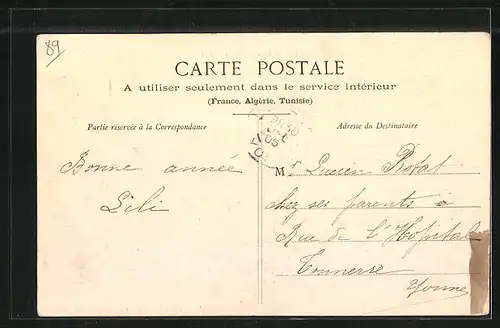 89
CARTE POSTALE
A utiliser seulement dans le service intérieur
(France, Algérie, Tunisie)
Partie réservée à la Correspondance
Adresse du Destinataire
Bonne année
Lili
Mr Lucien
chez ses parents
Rue de l'Hopital
Tonnerre
Yonne